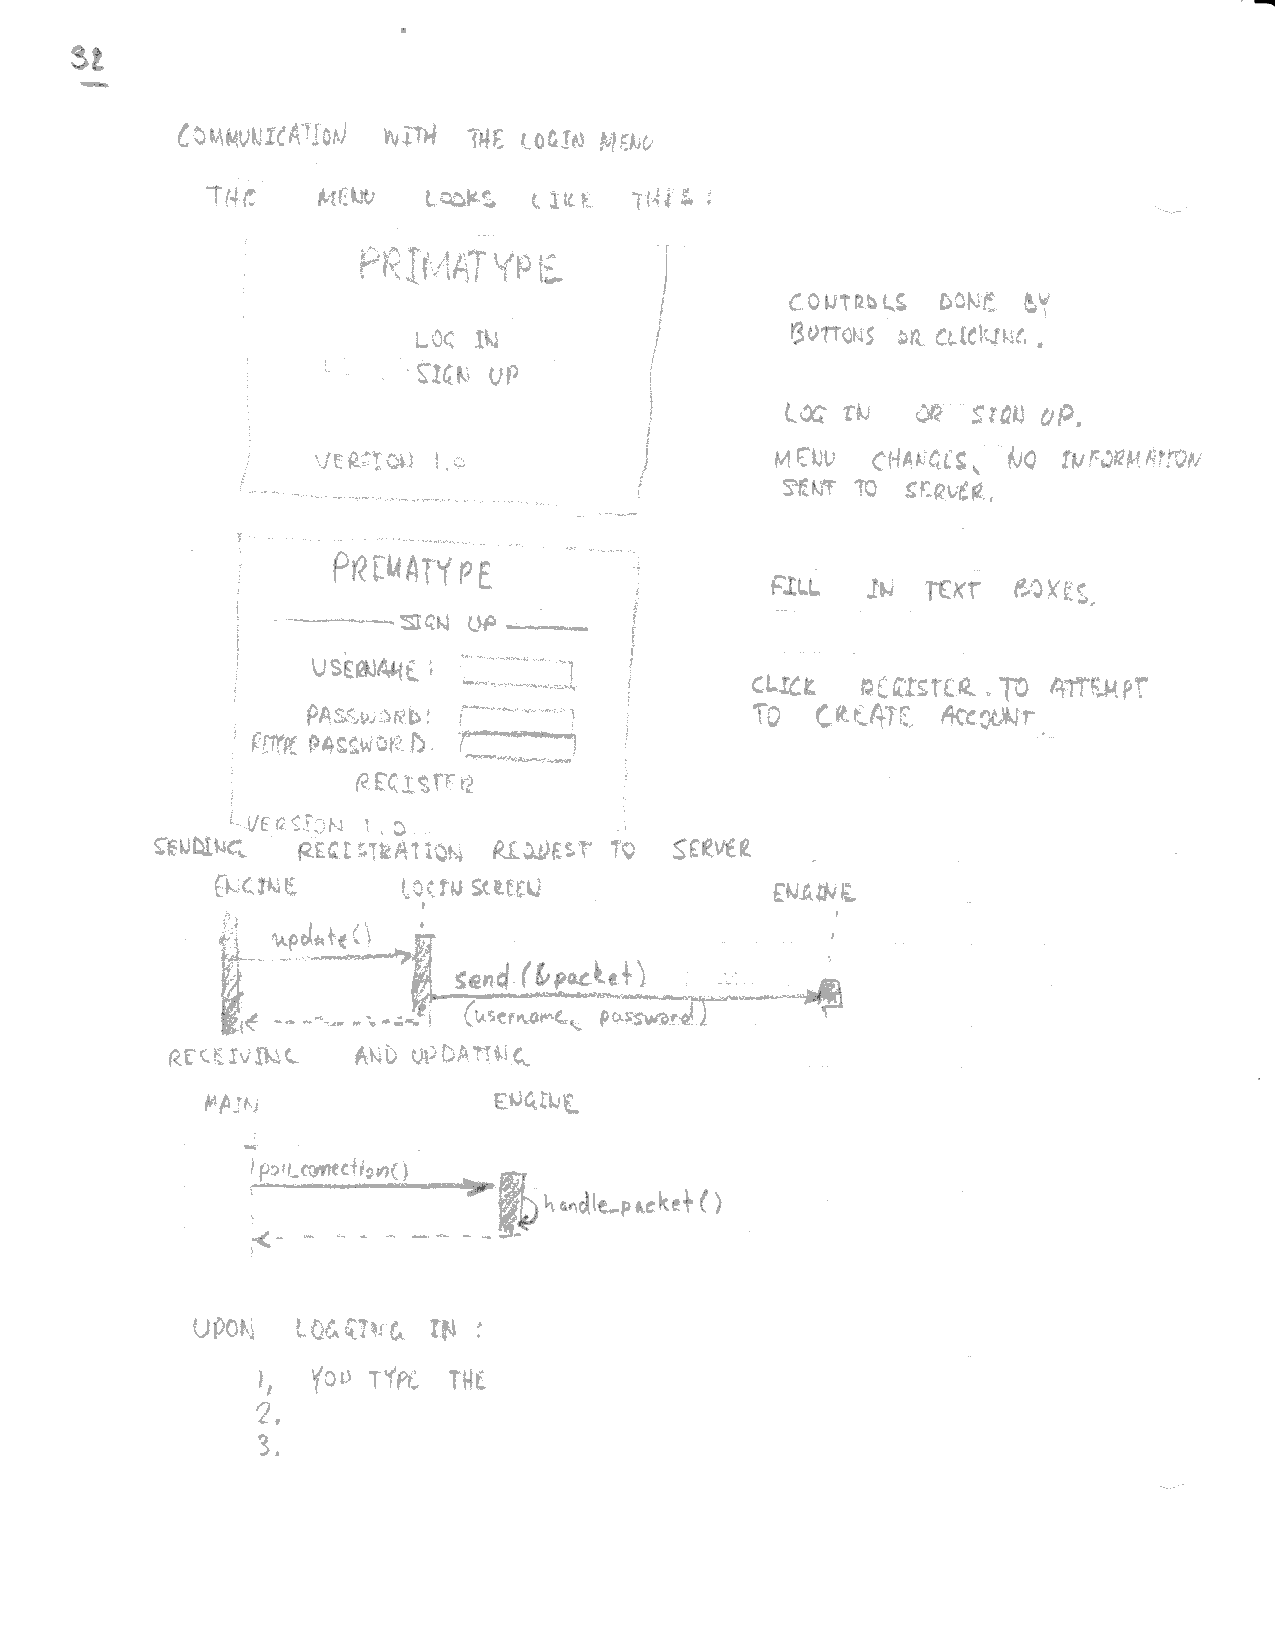 32
COMMUNICATION WITH THE LOGIN MENU
THE MENU LOOKS LIKE THIS:
PRIMATYPE
LOG IN
SIGN UP
VERSION 1.0
CONTROLS DONE BY
BUTTONS OR CLICKING.
LOG IN OR SIGN UP.
MENU CHANGES, NO INFORMATION
SENT TO SERVER.
PRIMATYPE
SIGN UP
USERNAME:
PASSWORD:
RETYPE PASSWORD:
REGISTER
VERSION 1.0
FILL IN TEXT BOXES.
CLICK REGISTER TO ATTEMPT
TO CREATE ACCOUNT
SENDING REGISTRATION REQUEST TO SERVER
ENGINE LOGIN SCREEN ENGINE
update()
send(&packet)
(username, password)
RECEIVING AND UPDATING
MAIN ENGINE
poll_connection()
handle_packet()
UPON LOGGING IN:
1, YOU TYPE THE
2.
3.